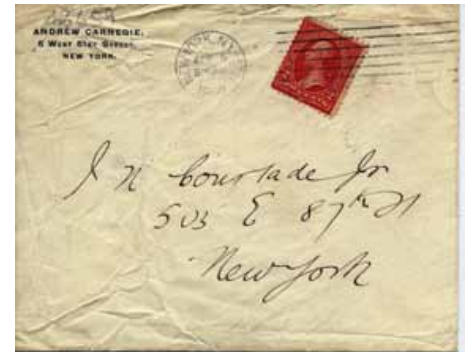 ANDREW CARNEGIE.
5 West 51st Street,
NEW YORK.
NEW YORK, N.Y.
J N Courtade Jr
503 E 87th St
New York